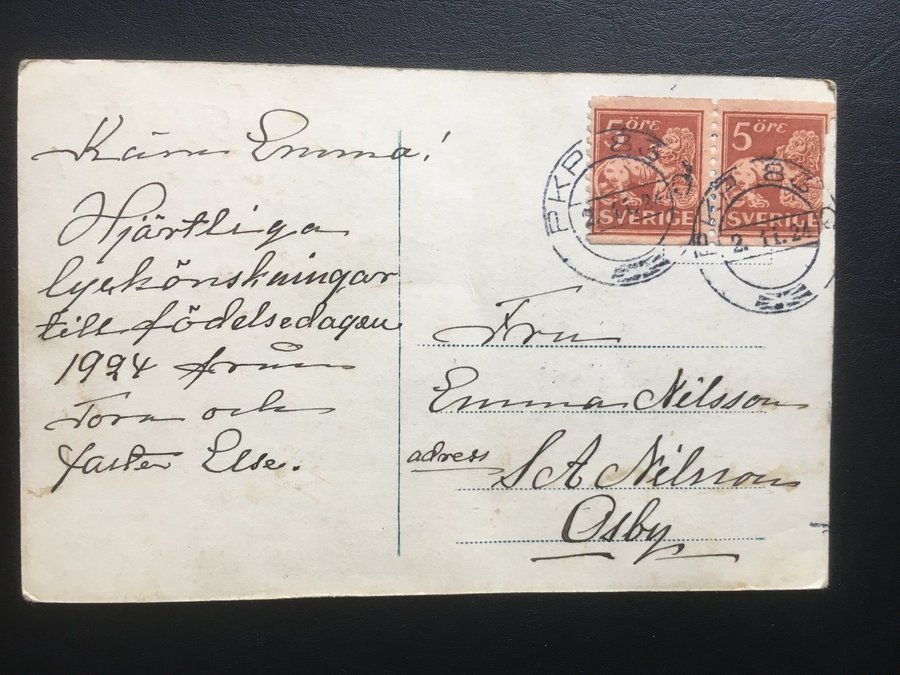 Kära Emma!
Hjärtliga
lyckönskningar
till födelsedagen
1924 från
Tora och
faster Else.
5 öre
SVERIGE
5 öre
SVERIGE
PKP 83
2.11.24
PKP 83
2.11.24
Fru
Emma Nilsson
adress
S A Nilsson
Osby